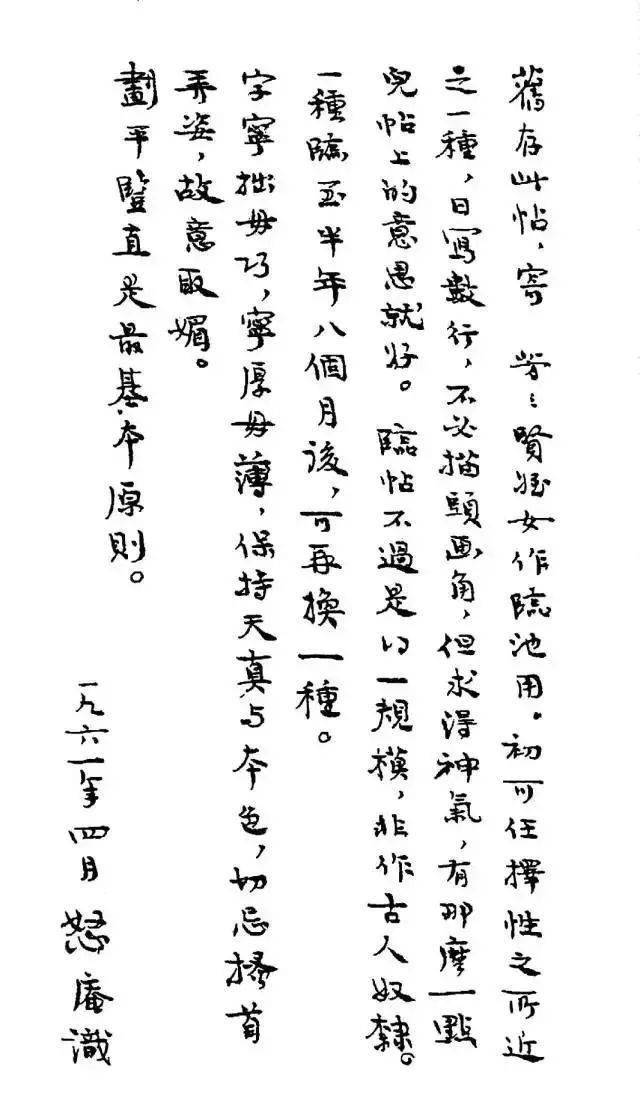 舊存此帖，寄　勞〻賢姪女作臨池用。初可任擇性之所近
之一種，日寫數行，不必描頭画角，但求得神氣，有那麼一點
兒帖上的意思就好。臨帖不過是得一規模，非作古人奴隸。
一種臨至半年八個月後，可再換一種。
字寧拙毋巧，寧厚毋薄，保持天真与本色，切忌搔首
弄姿，故意取媚。
劃平豎直是最基本原則。
一九六一年四月　怒庵識